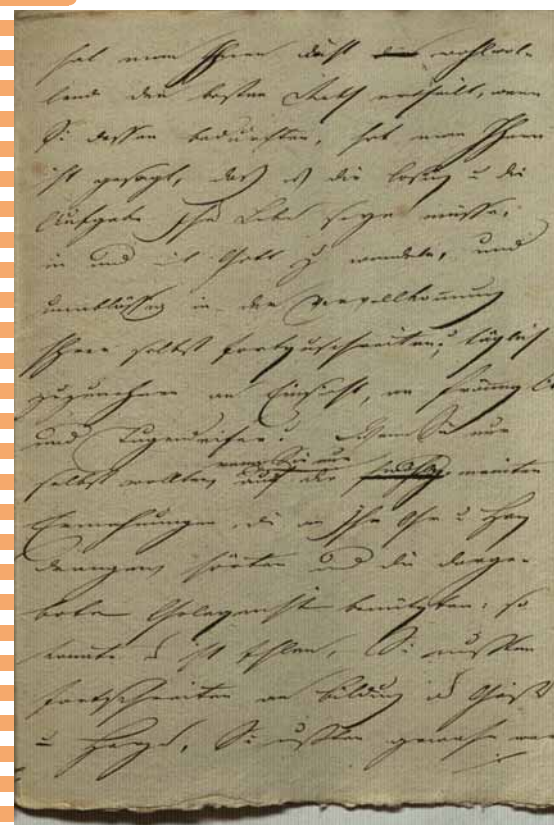 hat man Ihnen nicht wohlwol-
lend den besten Rath ertheilt, wenn
Sie dessen bedurften, hat man Ihnen
nicht gesagt, daß es die Losung u die
Aufgabe Ihr Leben seyn müsse,
in und mit Gott zu wandeln, und
unablässig in der Vervollkommnung
Ihrer selbst fortzuschreiten, täglich
zuzunehmen an Einsicht, an
und Tugendeifer. Wenn Sie nur
selbst wollten, wenn Sie nur
auf die gemeinten
Ermahnungen, die an Ihr Ohr u Herz
drangen, hörten und die darge-
botene Gelegenheit benützten: so
konnte es nicht fehlen, Sie mußten
fortschreiten an Bildung des Geistes
u Herzens, Sie mußten